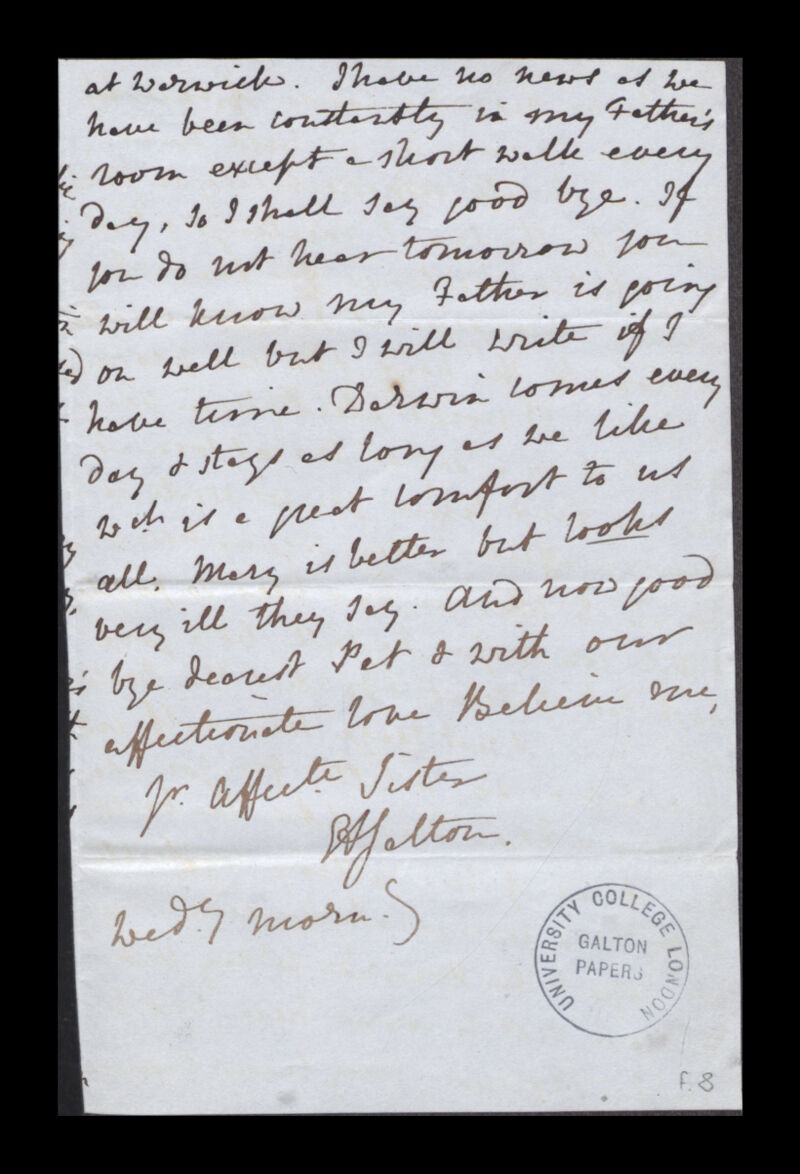 at Warwick. I have no news as we
have been constantly in my Father's
room except a short walk every
day, so I shall say good bye. If
you do not hear tomorrow you
will know my Father is going
on well but I will write if I
have time. Darwin comes every
day & stays as long as we like
wch. is a great comfort to us
all. Mary is better but looks
very ill they say. And now good
bye dearest Pet & with our
affectionate love Believe me,
yr. affecte. Sister
EAGalton.
Wedy. morng
UNIVERSITY COLLEGE LONDON
GALTON
PAPERS
f. 8